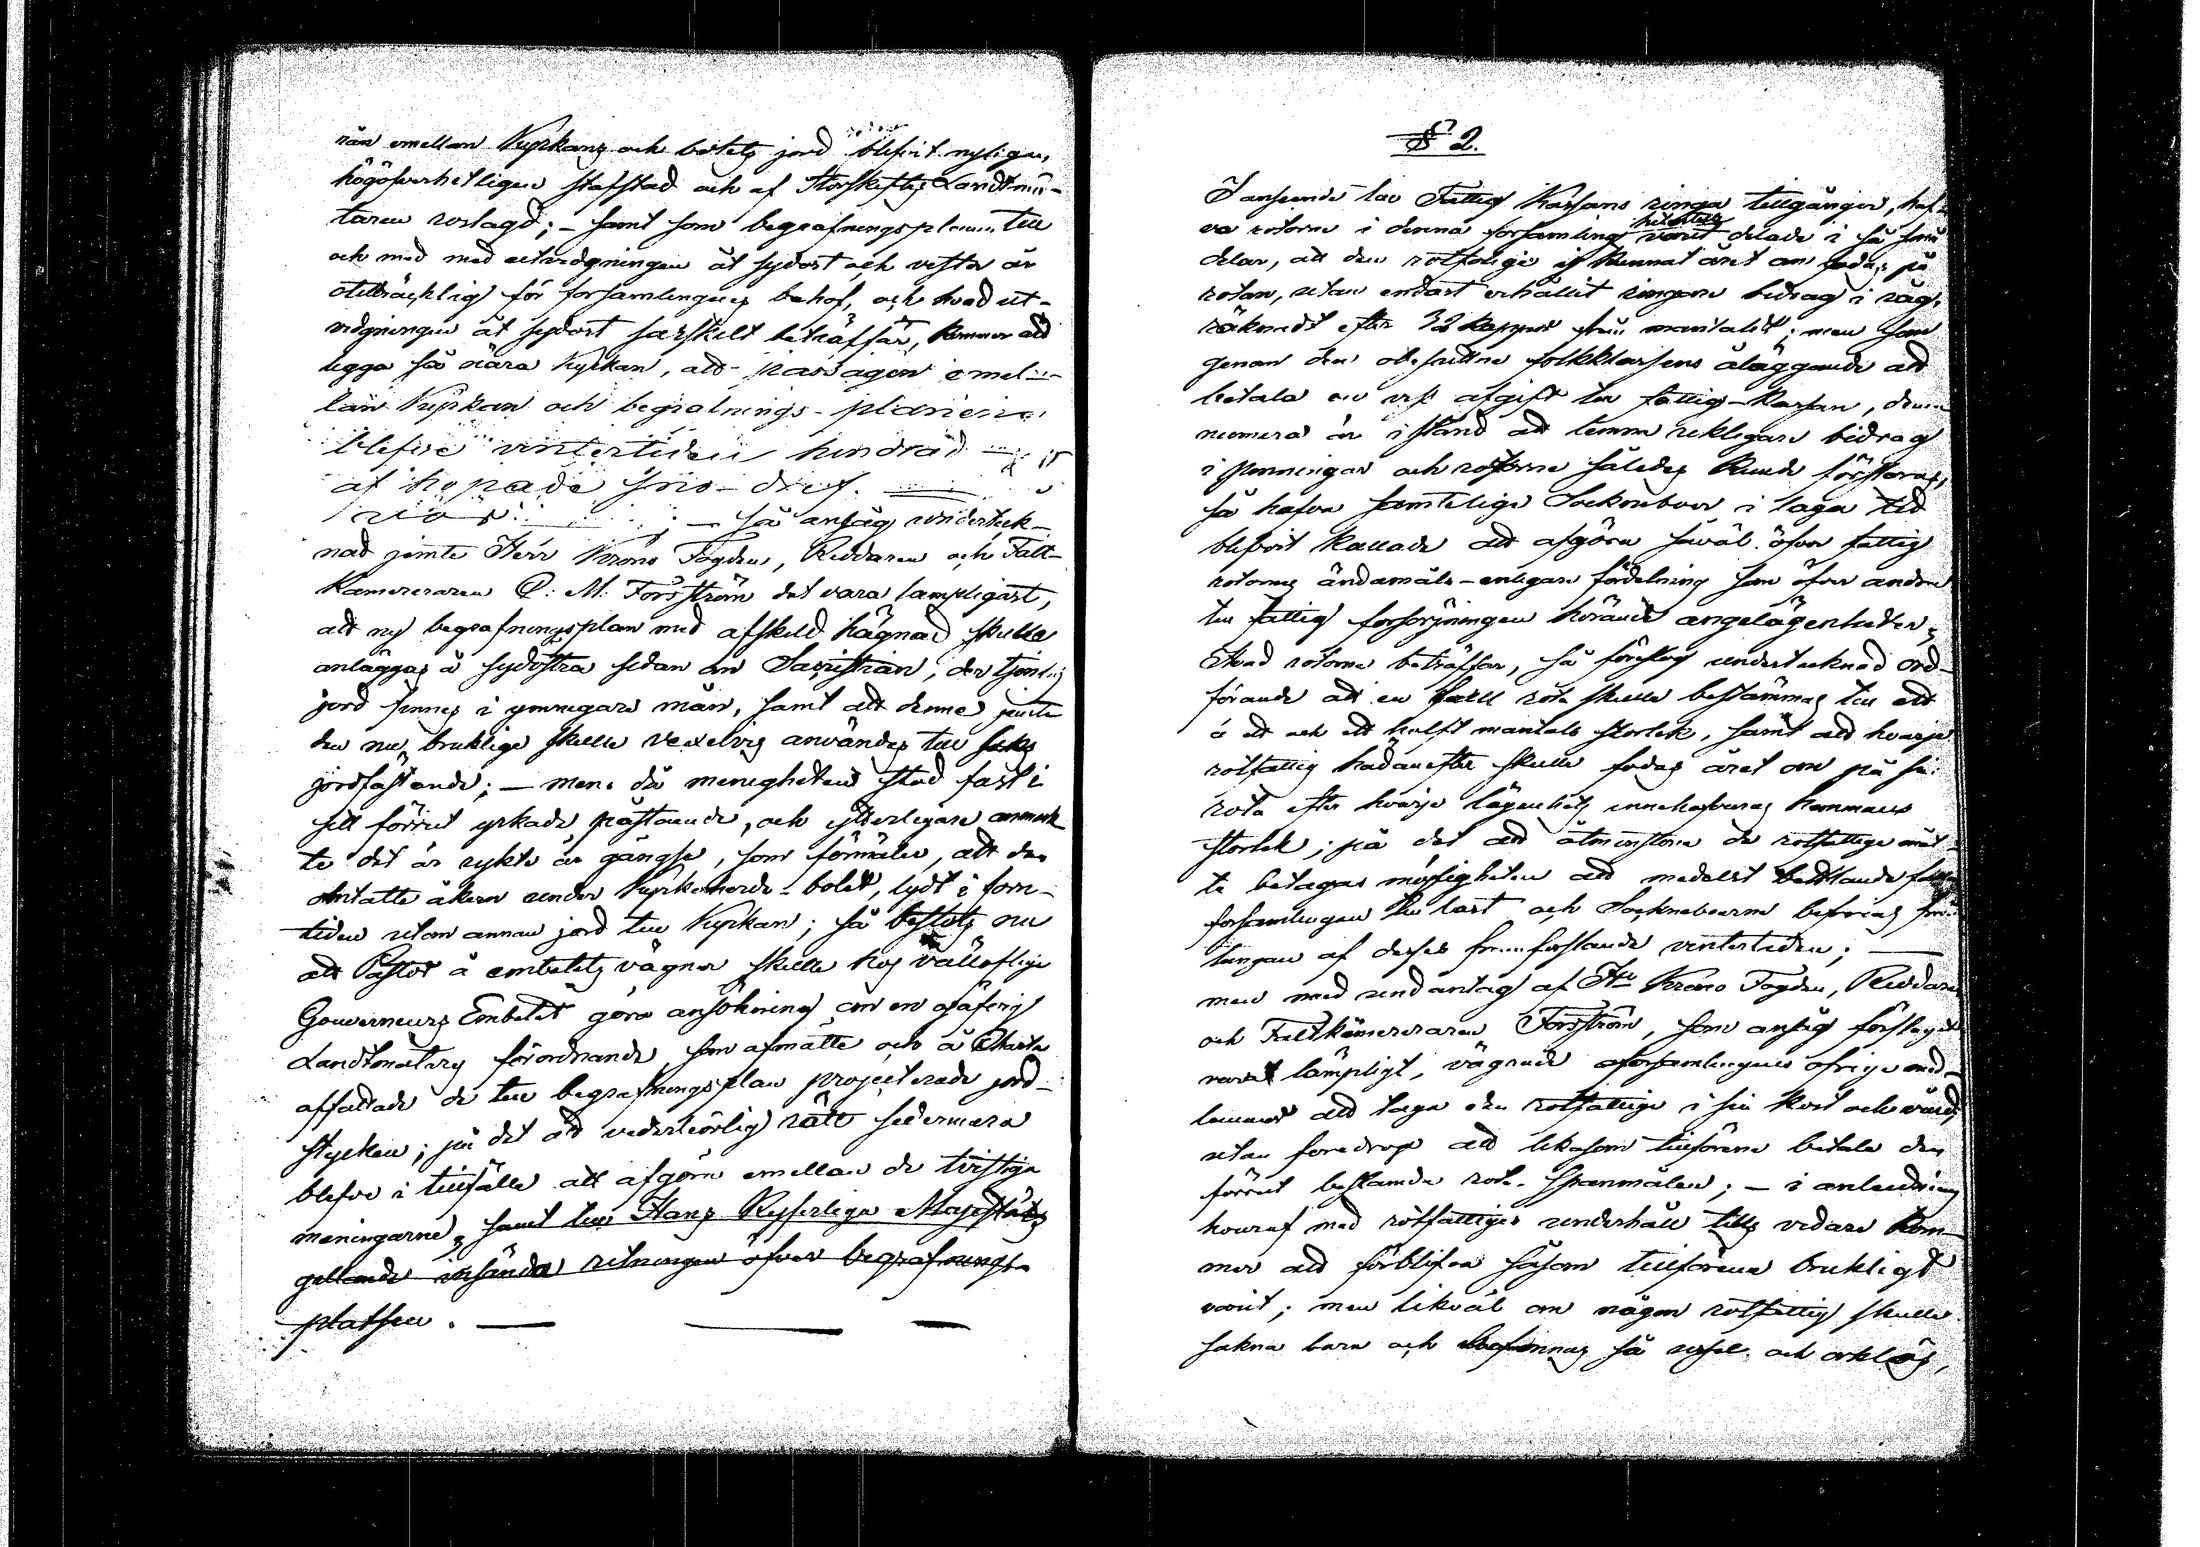 rån emellan Kyrkans och bolets jord blifvit nyligen,
högöfverhetligen stafstad och af Storskiftes Landtmä-
taren rorlagd; – samt som begrafningsplanen till
och med med utvidgningen åt sydost och vester är
otillräcklig för församlingens behof, och hvad ut-
vidgningen åt sydost särskilt beträffar, kommer att
ligga så nära Kyrkan, att passagen emel-
lan Kyrkan och begrafnings-planerna
blefve vintertiden hindrad
af hopade snö-drif.
; – så ansåg underteck-
nad jemte Herr Krono Fogden, Riddaren och Fält-
Kamereraren C. M. Forsström det vara lämpligast,
att ny begrafningsplan med afskild hägnad skulle
anläggas å sydöstra sidan om Sacristian, der tjenlig
jord finnes i ymnigare mån, samt att denne jemte
den nu brukliga skulle vexelvis användas till liks
jordfästande; – men då menigheten stod fast i
sitt förrut yrkade påstående, och ytterligare anmärk-
te det är rykte är gängse, som förmäler, att den
omtalte åkern under Kyrkoherde-bolet, lydt i forn-
tiden utom annan jord till Kyrkan; så beslöts nu
att Pastor å embetets vägnar skulle hos vällofliga
Gouverneurs Embetet göra ansökning om en ojäfvig
Landtmätares förordnande, som afmätte och å Charta
affattade de till begrafningsplan projecterade jord-
stycken; på det att vederbörlig rätt sedermera
blefve i tillfälle att afgöra emellan de tvistiga
meningarne, samt till Hans Kejserliga Majestäts
gällande insända ritningen öfver begrafnings-
platsen. –
§ 2.
I anseende till Fattig Kassans ringa tillgångar, haf-
va rotorne i denna församling hitintills varit delade i så små
delar, att den rotfattige ej kunnat året om födas på
rotan, utan endast erhållit ringare bidrag i råg,
räknadt efter 32 kappar från mantalet; men som
genom den obesuttne folkklassens åläggande att
betala en viss afgift till fattig-Kassan, denna
numera är i stånd att lemna rikligare bidrag
i penningar och rotorne således kunde förstoras,
så hafva samtelige Sockneboer i laga tid
blifvit kallade att afgöra såväl öfver fattig
rotornes ändamåls-enligare fördelning som öfver andra
till fattig försörjningen hörande angelägenheter.
Hvad rotorne beträffar, så föreslog undertecknad ord-
förande att en hvar rota skulle bestämmas till ett
à ett och ett halft mantals storlek, samt att hvarje
rotfattig hädanefter skulle födas året om på sin
rota efter hvarje lägenhets innehafvares hemmans
storlek; på det att åtminstone de rotfattige måt-
te betagas möjligheten att medelst bettlande falla
församlingen till last och Socknebоerne befrias från
tungan af deras forslande vintertiden; –
men med undantag af Hr Krono Fogden, Riddaren
och Fältkamereraren Forsström, som ansåg förslaget
vara lämpligt, vägrade församlingens öfriga med-
lemmar att taga den rotfattige i sin kost och vård,
utan föredrog att likasom tillförene betala den
förrut bestämda rote-spanmålen; – i anledning
hvaraf med rotfattiges underhåll tills vidare kom-
mer att förblifva såsom tillförene brukligt
varit; men likväl om någon rotfattig skulle
sakna barn och befinnas så usel och orklös,